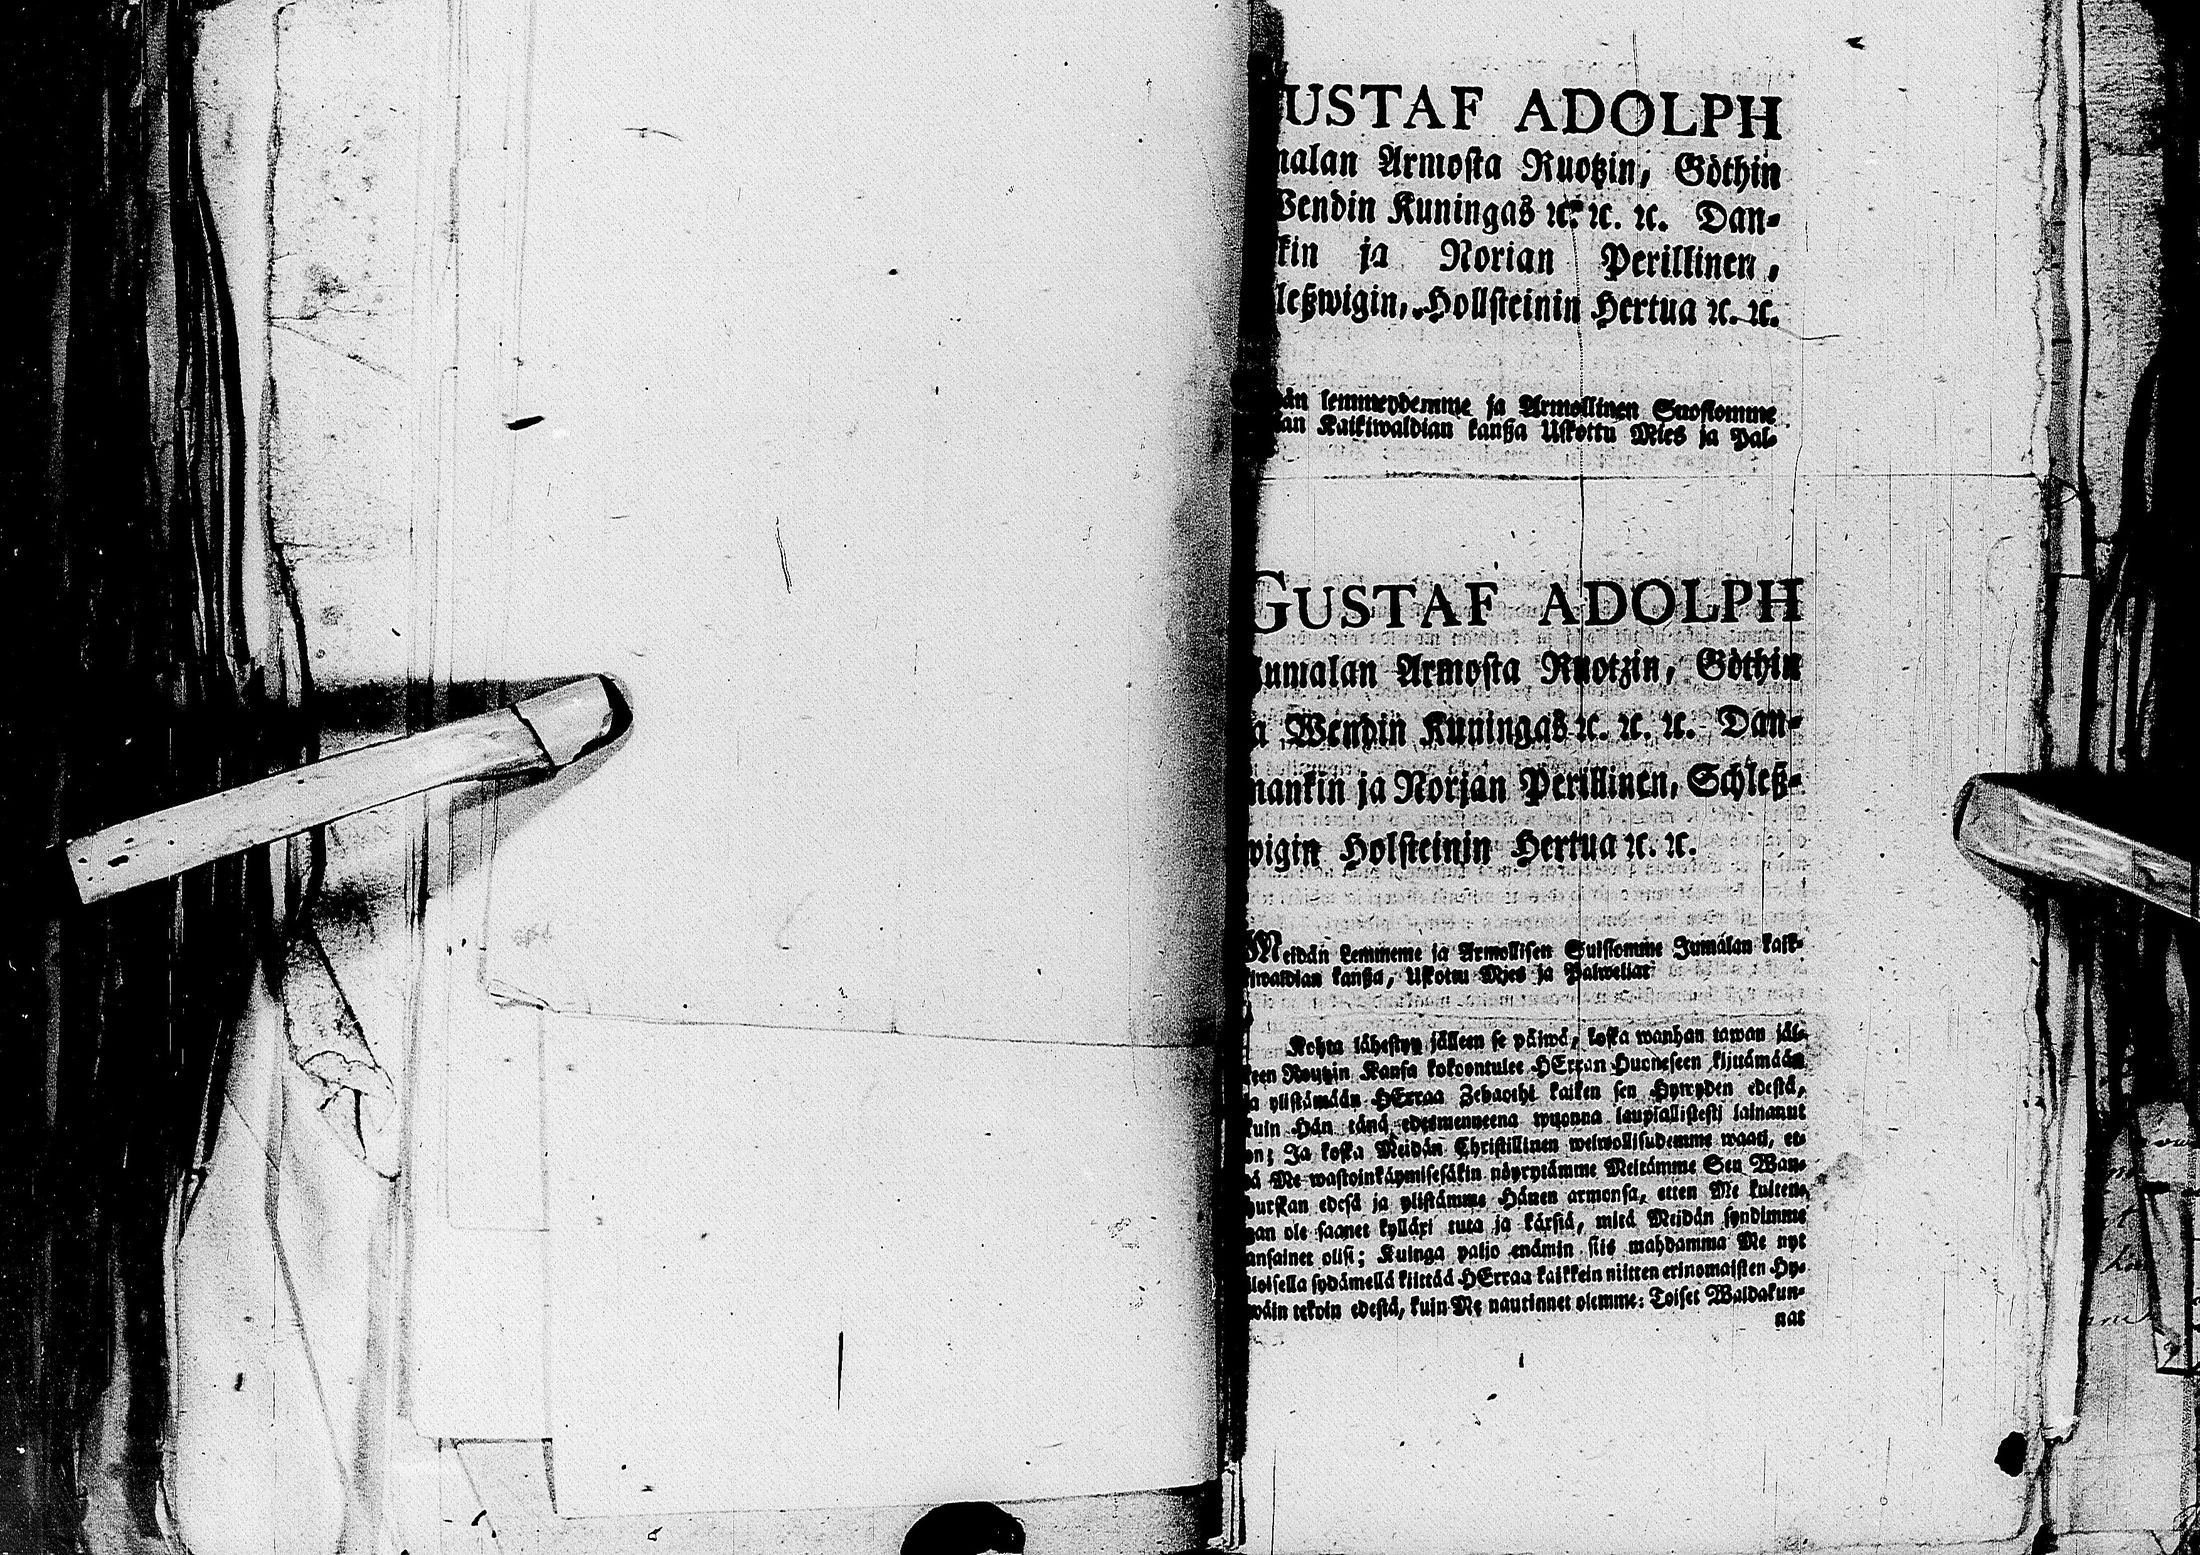 USTAF ADOLPH
malan Armosta Ruotzin, Göthin
Wendin Kuningas ꝛc. ꝛc. ꝛc. Dan-
kin ja Norian Perillinen,
leßwigin, Hollsteinin Hertua ꝛc. ꝛc.
än lemmeydemme ja Armollinen Suosiomme
lan Kaikiwaldian kanßa Uskottu Mies ja Pal-
GUSTAF ADOLPH
Jumalan Armosta Ruotzin, Göthin
a Wendin Kuningas ꝛc. ꝛc. ꝛc. Dan-
nankin ja Norjan Perillinen, Schleß-
wigin Holsteinin Hertua ꝛc. ꝛc.
Meidän Lemmeme ja Armollisen Suisiomme Jumalan kaik-
kiwaldian kanßa, Uskottu Mies ja Palweliat
Kohta lähestyy jälleen se päiwä, koska wanhan tawan jäl-
keen Ruotzin Kansa kokoontulee HErran Huoneseen kijttämään
ja ylistämään HErraa Zebaothi kaiken sen Hywyden edestä,
kuin Hän tänä edesmenneena wuonna laupiallistesti lainanut
on; Ja koska Meidän Christillinen welwollisudemme waati, et-
tä Me wastoinkäymisesäkin nöyrytämme Meitämme Sen Wan-
hurskan edesä ja ylistämme Hänen armonsa, etten Me kuiten-
gan ole saanet kylläxi tuta ja kärsiä, mitä Meidän syndimme
ansainet olisi; Kuinga paljo enämin siis mahdamma Me nyt
iloisella sydämellä kiittää HErraa kaikkein niitten erinomaisten Hy-
wäin tekoin edestä, kuin Me nautinnet olemme: Toiset Waldakun-
nat